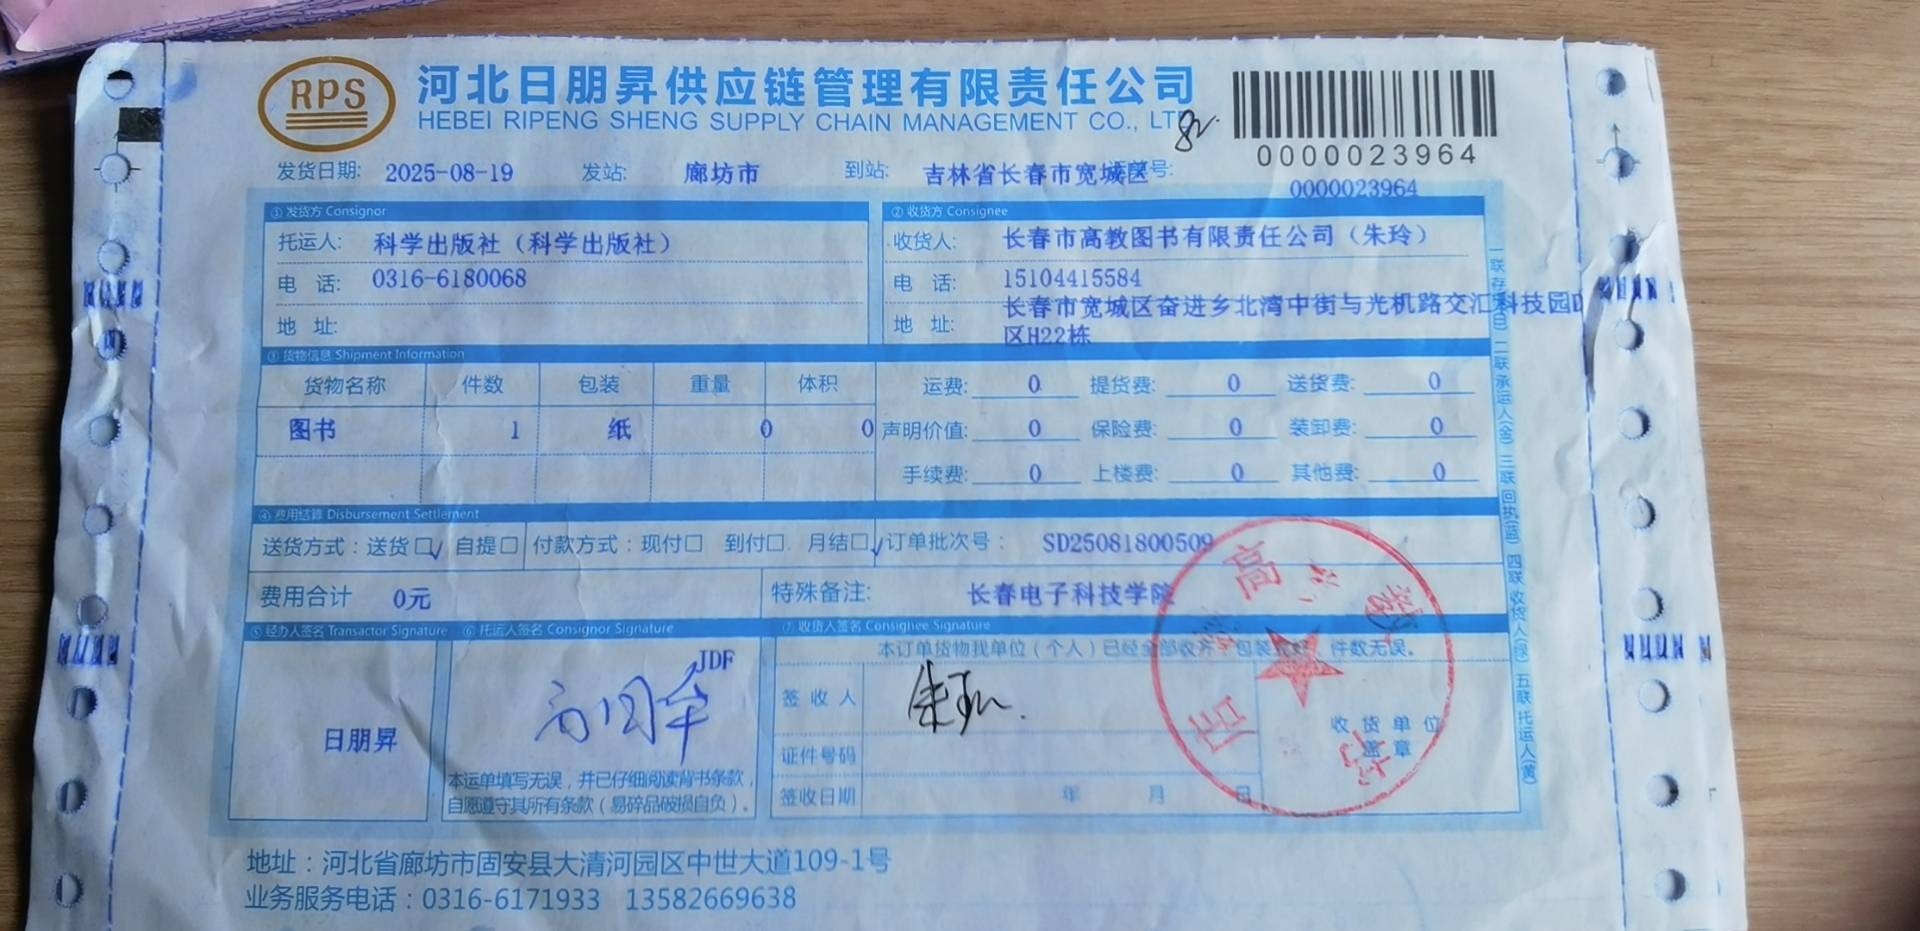 RPS
河北日朋昇供应链管理有限责任公司
HEBEI RIPENG SHENG SUPPLY CHAIN MANAGEMENT CO., LTD
0000023964
发货日期: 2025-08-19 发站: 廊坊市 到站: 吉林省长春市宽城区 号: 0000023964
① 发货方 Consignor ② 收货方 Consignee
托运人: 科学出版社（科学出版社） 收货人: 长春市高教图书有限责任公司（朱玲）
电 话: 0316-6180068 电 话: 15104415584
地 址: 地 址: 长春市宽城区奋进乡北湾中街与光机路交汇科技园
区H22栋
③ 货物信息 Shipment Information
货物名称 件数 包装 重量 体积 运费: 0 提货费: 0 送货费: 0
图书 1 纸 0 0 声明价值: 0 保险费: 0 装卸费: 0
手续费: 0 上楼费: 0 其他费: 0
④ 费用结算 Disbursement Settlement
送货方式：送货☐√ 自提☐ 付款方式：现付☐ 到付☐ 月结☐√ 订单批次号： SD25081800509
费用合计 0元 特殊备注: 长春电子科技学院
⑤ 经办人签名 Transactor Signature ⑥ 托运人签名 Consignor Signature ⑦ 收货人签名 Consignee Signature
本订单货物我单位（个人）已经全部收齐，包装完好，件数无误。
JDF
签 收 人 朱玲
日朋昇
收 货 单 位
盖 章
证件号码
本运单填写无误，并已仔细阅读背书条款，
自愿遵守其所有条款（易碎品破损自负）。
签收日期 年 月 日
二联承运人(金) 三联回执(蓝) 四联收货人(绿) 五联托运人(黄)
地址：河北省廊坊市固安县大清河园区中世大道109-1号
业务服务电话：0316-6171933 13582669638